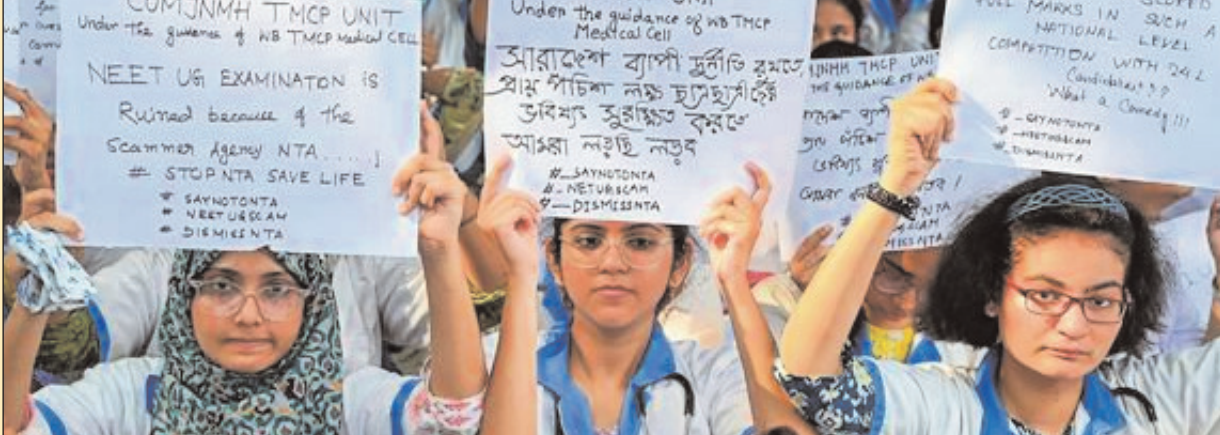 COMJNMH TMCP UNIT
Under the guidance of WB TMCP Medical CELL
NEET UG EXAMINATON is
Ruined because of the
Scammer Agency NTA.....!
# STOP NTA SAVE LIFE
# SAYNOTONTA
# NEETUGSCAM
# DISMISSNTA
Under the guidance of WB TMCP
Medical Cell
সারাদেশ ব্যাপী দুর্নীতি রুখতে,
প্রায় পঁচিশ লক্ষ ছাত্রছাত্রীদের
ভবিষ্যৎ সুরক্ষিত করতে
আমরা লড়ছি লড়ব
#_SAYNOTONTA
#_NETUGSCAM
#_DISMISSNTA
JNMH TMCP UNI
THE GUIDANCE OF W
NTA
AM
MISSNTA
FULL MARKS IN SUCH A
NATIONAL LEVEL
COMPETITION WITH 24L
Candidates???
What a Comedy!!!
#_SAYNOTONTA
#_NEETUGSCAM
#_DISMISSNTA